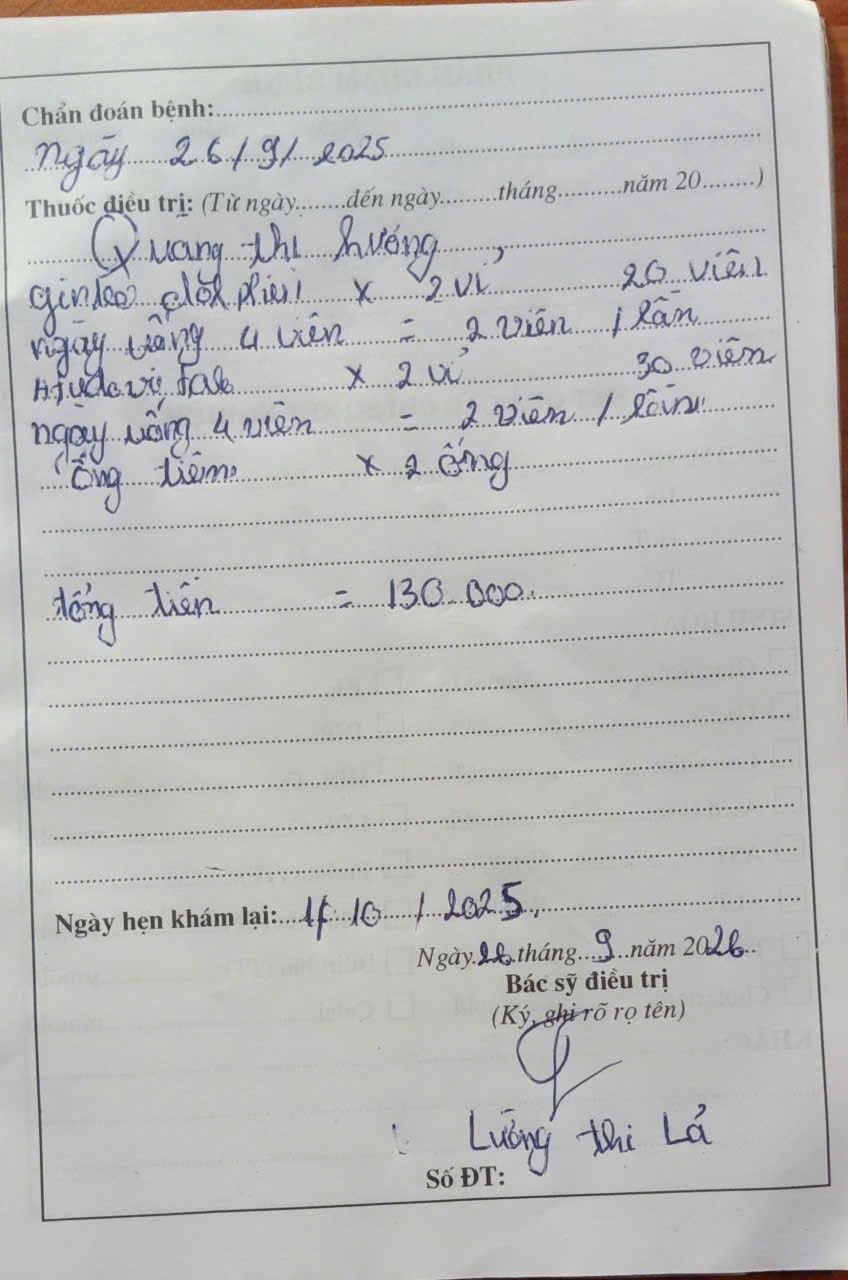 Chẩn đoán bệnh:
ngày 26/9/2025
Thuốc điều trị: (Từ ngày........đến ngày.........tháng..........năm 20........)
Quang thị hướng
x 2 vỉ 20 viên
ngày uống 4 viên = 2 viên / lần
x 2 vỉ 30 viên
ngày uống 4 viên = 2 viên / lần
ống tiêm x 2 ống
tổng tiền = 130.000
Ngày hẹn khám lại: / 10 / 2025
Ngày 26 tháng 9 năm 2026
Bác sỹ điều trị
(Ký, ghi rõ rọ tên)
Lường thị Lả
Số ĐT: